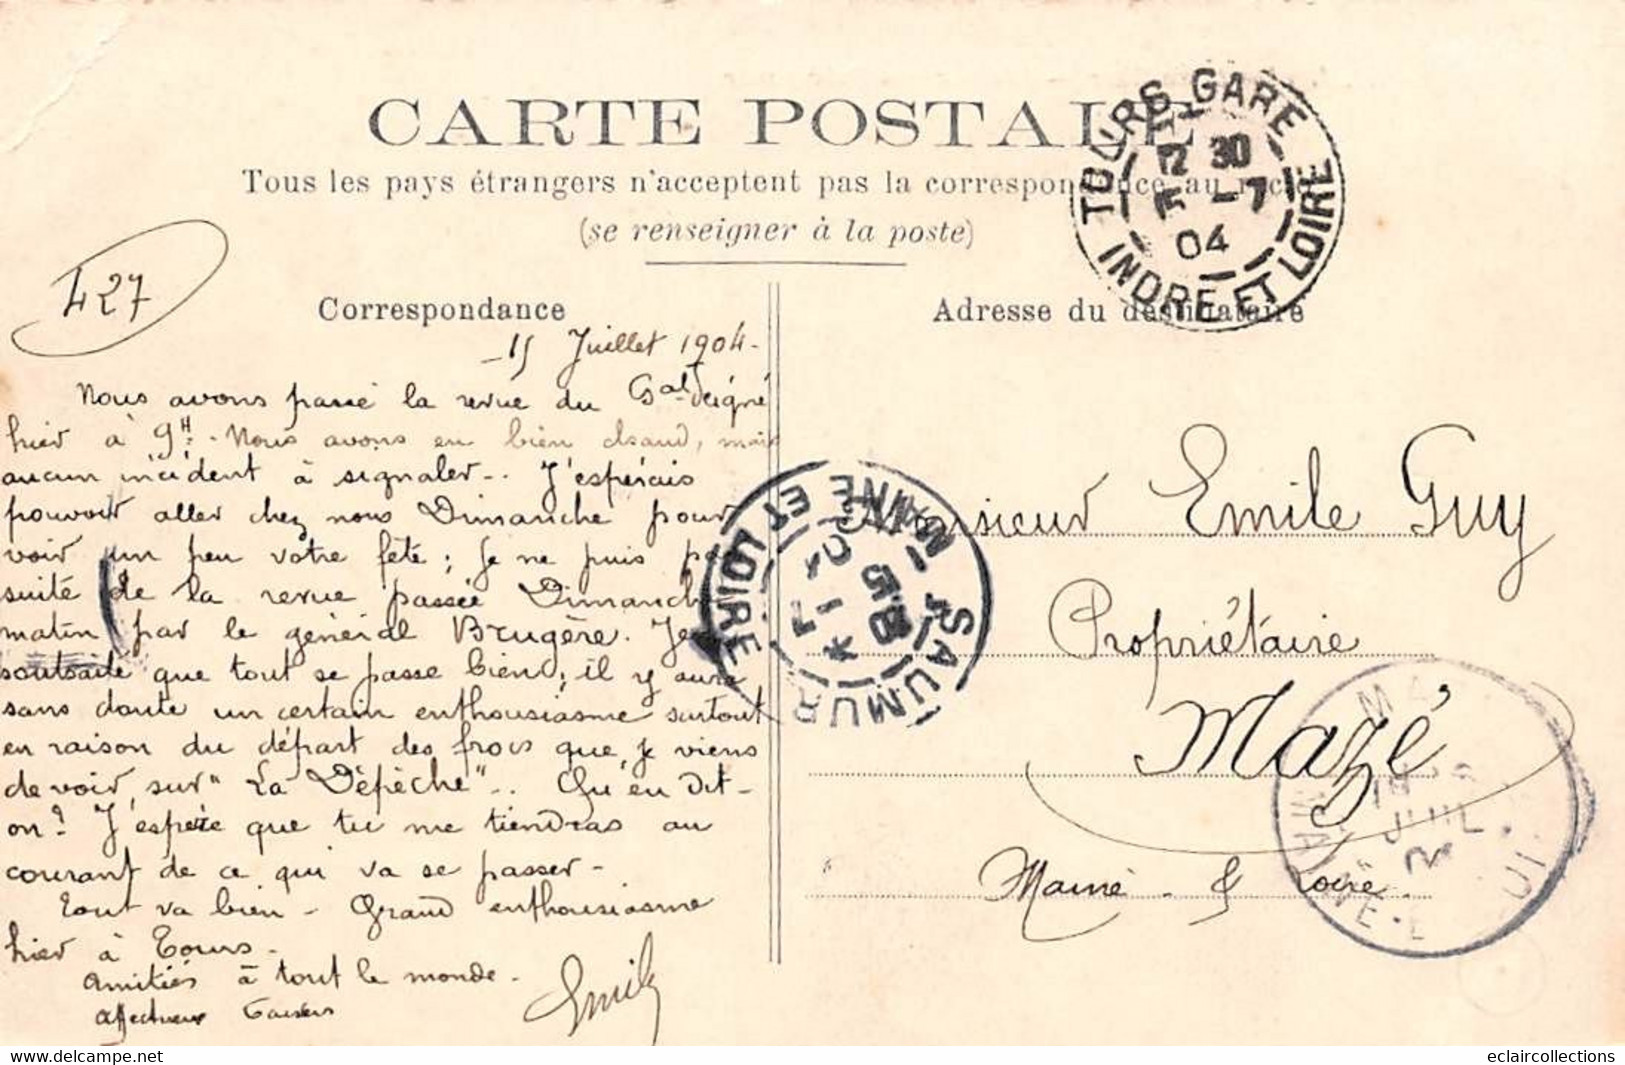 CARTE POSTALE
Tous les pays étrangers n'acceptent pas la correspondance au recto
(se renseigner à la poste)
TOURS-GARE
12 30
15 -7
04
INDRE ET LOIRE
427
Correspondance
Adresse du destinataire
15 Juillet 1904.
Nous avons passé la revue du Gal
hier à 9H. - Nous avons eu bien chaud, mais
aucun incident à signaler.. J'espérais
pouvoir aller chez nous Dimanche pour
voir un peu votre fête ; je ne puis par
suite de la revue passée Dimanche
matin par le général Brugère. Je
souhaite que tout se passe bien; il y aura
sans doute un certain enthousiasme surtout
en raison du départ des frocs que je viens
de voir, sur "La Dépêche".. Qu'en dit-
on? J'espère que tu me tiendras au
courant de ce qui va se passer -
Tout va bien - Grand enthousiasme
hier à Tours -
Amitiés à tout le monde -
Affectueux baisers
Emile
SAUMUR
MAINE ET LOIRE
Monsieur Emile Guy
Propriétaire
Mazé
Maine & Loire
eclaircollections.delcampe.net
eclaircollections